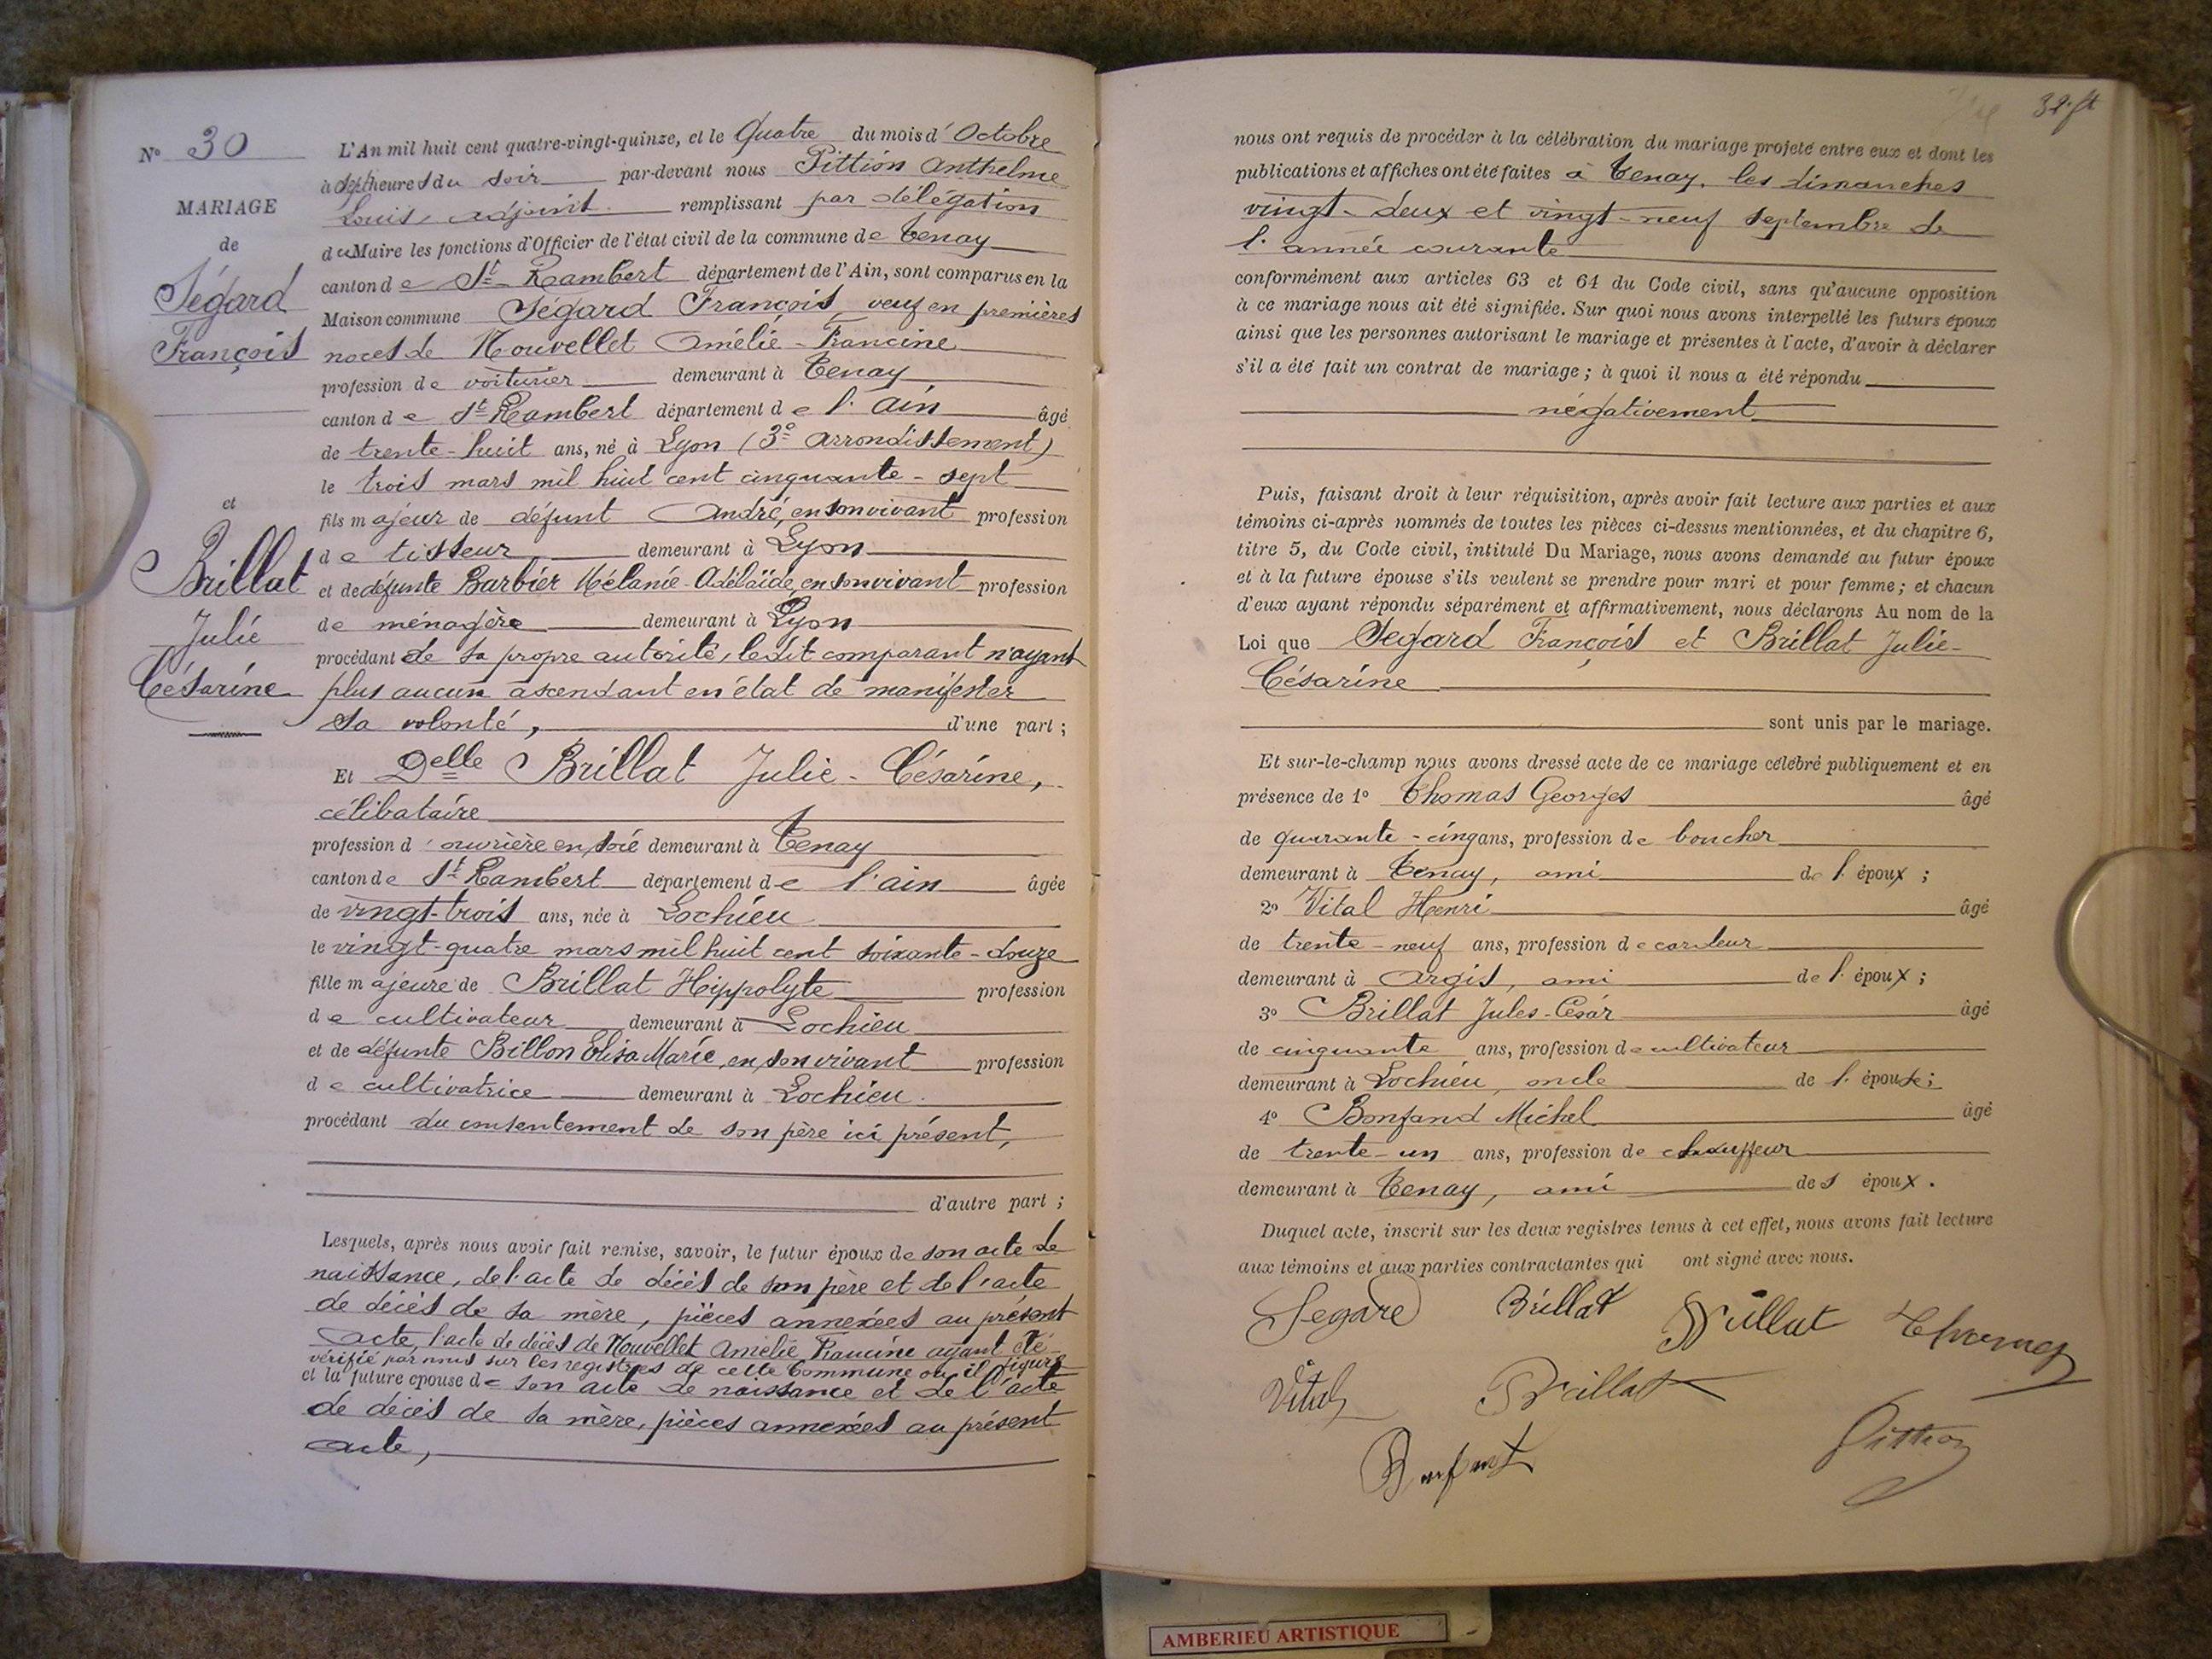 N° 30
MARIAGE
de
Ségard
François
et
Brillat
Julie
Césarine
L'An mil huit cent quatre-vingt-quinze, et le Quatre du mois d'Octobre
à sept heures du soir par-devant nous Pittion Anthelme
Louis, adjoint remplissant par délégation
du Maire les fonctions d'Officier de l'état civil de la commune de Tenay
canton de St Rambert département de l'Ain, sont comparus en la
Maison commune Ségard François, veuf en premières
noces de Nouvellet Amélie-Francine
profession de voiturier demeurant à Tenay
canton de St Rambert département de l'Ain âgé
de trente-huit ans, né à Lyon (3e arrondissement)
le trois mars mil huit cent cinquante-sept
fils majeur de défunt André, en son vivant profession
de tisseur demeurant à Lyon
et de défunte Barbier Mélanie-Adélaïde, en son vivant profession
de ménagère demeurant à Lyon
procédant de sa propre autorité, ledit comparant n'ayant
plus aucun ascendant en état de manifester
sa volonté, d'une part ;
Et Delle Brillat Julie-Césarine,
célibataire
profession d'ouvrière en soie demeurant à Tenay
canton de St Rambert département de l'ain âgée
de vingt-trois ans, née à Lochieu
le vingt-quatre mars mil huit cent soixante-douze
fille majeure de Brillat Hippolyte profession
de cultivateur demeurant à Lochieu
et de défunte Billon Elisa Marie, en son vivant profession
de cultivatrice demeurant à Lochieu.
procédant du consentement de son père ici présent,
d'autre part ;
Lesquels, après nous avoir fait remise, savoir, le futur époux de son acte de
naissance, de l'acte de décès de son père et de l'acte
de décès de sa mère, pièces annexées au présent
acte, l'acte de décès de Nouvellet Amélie Francine ayant été
vérifié par nous sur les registres de cette Commune ou il figure
et la future épouse de son acte de naissance et de l'acte
de décès de sa mère, pièces annexées au présent
acte,
32
nous ont requis de procéder à la célébration du mariage projeté entre eux et dont les
publications et affiches ont été faites à Tenay, les dimanches
vingt-deux et vingt-neuf septembre de
l'année courante
conformément aux articles 63 et 64 du Code civil, sans qu'aucune opposition
à ce mariage nous ait été signifiée. Sur quoi nous avons interpellé les futurs époux
ainsi que les personnes autorisant le mariage et présentes à l'acte, d'avoir à déclarer
s'il a été fait un contrat de mariage ; à quoi il nous a été répondu
négativement
Puis, faisant droit à leur réquisition, après avoir fait lecture aux parties et aux
témoins ci-après nommés de toutes les pièces ci-dessus mentionnées, et du chapitre 6,
titre 5, du Code civil, intitulé Du Mariage, nous avons demandé au futur époux
et à la future épouse s'ils veulent se prendre pour mari et pour femme ; et chacun
d'eux ayant répondu séparément et affirmativement, nous déclarons Au nom de la
Loi que Segard François et Brillat Julie-
Césarine
sont unis par le mariage.
Et sur-le-champ nous avons dressé acte de ce mariage célébré publiquement et en
présence de 1° Thomas Georges âgé
de quarante-cinq ans, profession de boucher
demeurant à Tenay, ami de l'époux ;
2° Vital Henri âgé
de trente-neuf ans, profession de cardeur
demeurant à Argis, ami de l'époux ;
3° Brillat Jules-César âgé
de cinquante ans, profession de cultivateur
demeurant à Lochieu, oncle de l'épouse ;
4° Bonfand Michel âgé
de trente-un ans, profession de chauffeur
demeurant à Tenay, ami des époux.
Duquel acte, inscrit sur les deux registres tenus à cet effet, nous avons fait lecture
aux témoins et aux parties contractantes qui ont signé avec nous.
Segard Brillat Brillat Thomas
Vital Brillat
Bonfant Pittion
AMBERIEU ARTISTIQUE